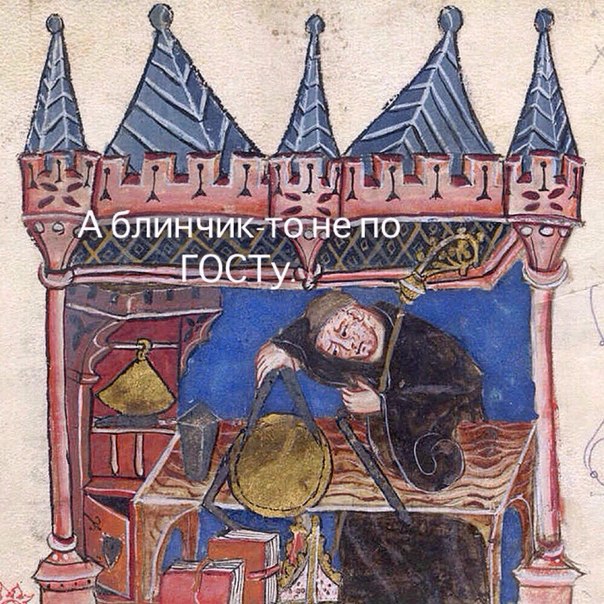 А блинчик-то не по
ГОСТу.